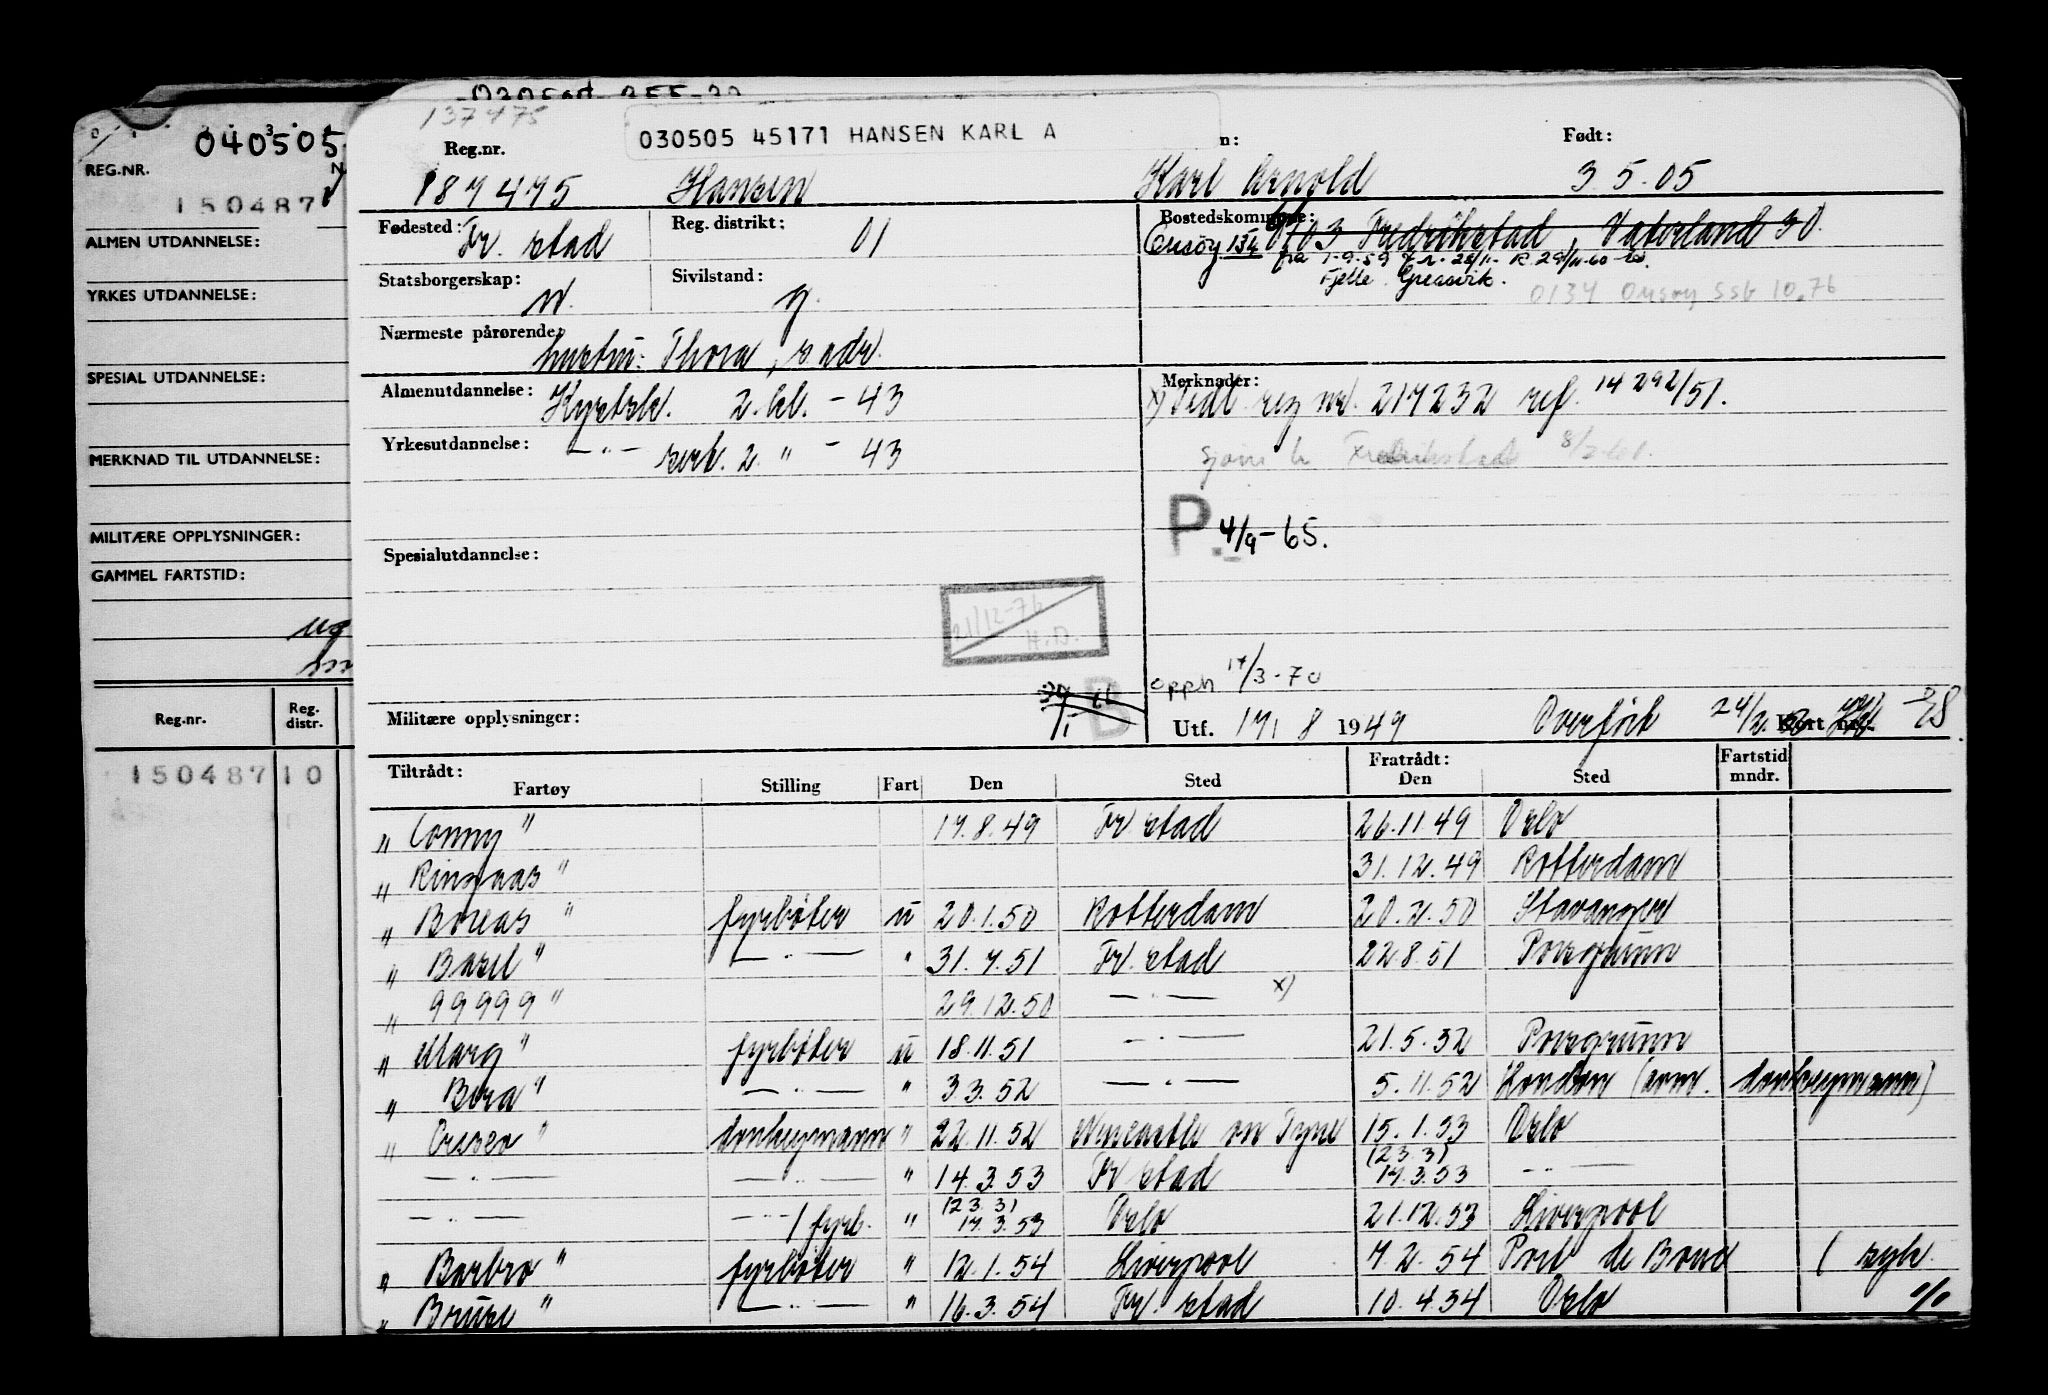 040505
REG.NR.
150487
ALMEN UTDANNELSE:
YRKES UTDANNELSE:
SPESIAL UTDANNELSE:
MERKNAD TIL UTDANNELSE:
MILITÆRE OPPLYSNINGER:
GAMMEL FARTSTID:
Reg.nr. Reg. distr.
150487 10
137475
030505 45171 HANSEN KARL A
Reg.nr. n: Født:
187475 Hansen Karl Arnold 3.5.05
Fødested: Fr. stad Reg. distrikt: 01 Bostedskommune: 0103 Fredrikstad, Vaterland 30
Onsøy 134 fra 1-9-59
Statsborgerskap: n. Sivilstand: g. Fjelle Greåsvik.
0134 Onsøy SSB 10.76
Nærmeste pårørende: hustru: Thora, s. adr.
Almenutdannelse: Kystsk. 2. kl. - 43 Merknader: x) Tidl. reg nr. 217232 ref. 14292/51.
Yrkesutdannelse: — " — sert. 2. " - 43
Fredrikstad
P. 4/9-65.
Spesialutdannelse:
21/12-76
H.O.
opph 17/3-70
B
Militære opplysninger: Utf. 17/8 1949 Overført 24/2 Kort nr.
Tiltrådt: Fratrådt: Fartstid
Fartøy Stilling Fart Den Sted Den Sted mndr.
" Conny " 17.8.49 Fr stad 26.11 49 Oslo
" Ringaas " 31.12.49 Rotterdam
" Boreas " fyrbøter u 20.1.50 Rotterdam 20.2.50 Stavanger
" Basel " — " — " 31.7.51 Fr. stad 22.8.51 Porsgrunn
" 99999 " 29.12.50 — " — x)
" Marg " fyrbøter u 18.11.51 — " — 21.5.52 Porsgrunn
" Bera " — " — " 3.3.52 — " — 5.11.52 London (avm. donkeymann)
" Crisco " donkeymann " 22.11.52 Newcastle on Tyne 15.1.53 Oslo
— " — — " — " 14.3.53 Fr stad (23.3) 17.3.53 — " —
— " — — " — / fyrb. " (23.3) 17.3.53 Oslo 21.12.53 Liverpool
" Barbro " fyrbøter " 12.1.54 Liverpool 7.2.54 Port de Bouc ( syk.
" Bruse " — " — " 16.3.54 Fr. stad 10.4.54 Oslo